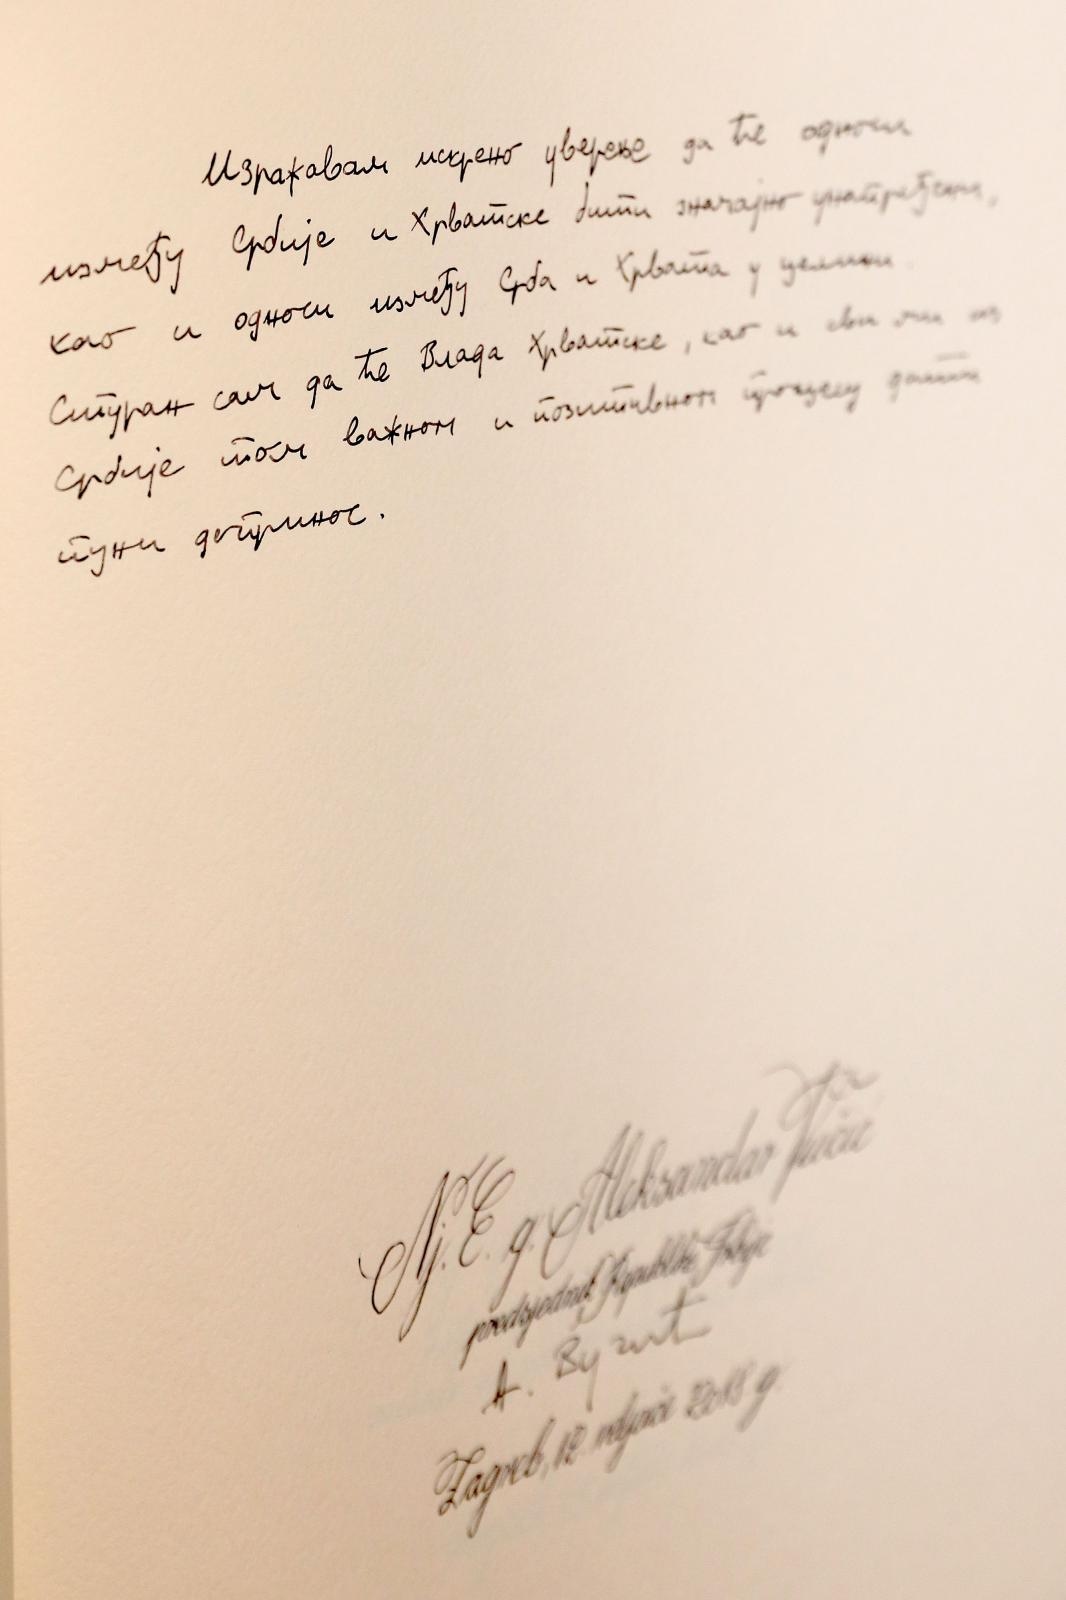 Изражавам искрено уверење да ће односи
између Србије и Хрватске бити значајно унапређени,
као и односи између Срба и Хрвата у целини.
Сигуран сам да ће Влада Хрватске, као и сви ми из
Србије том важном и позитивном процесу дати
пуни допринос.
Nj. E. g. Aleksandar Vučić
predsjednik Republike Srbije
А. Вучић
Zagreb, 12. veljače 2018 g.